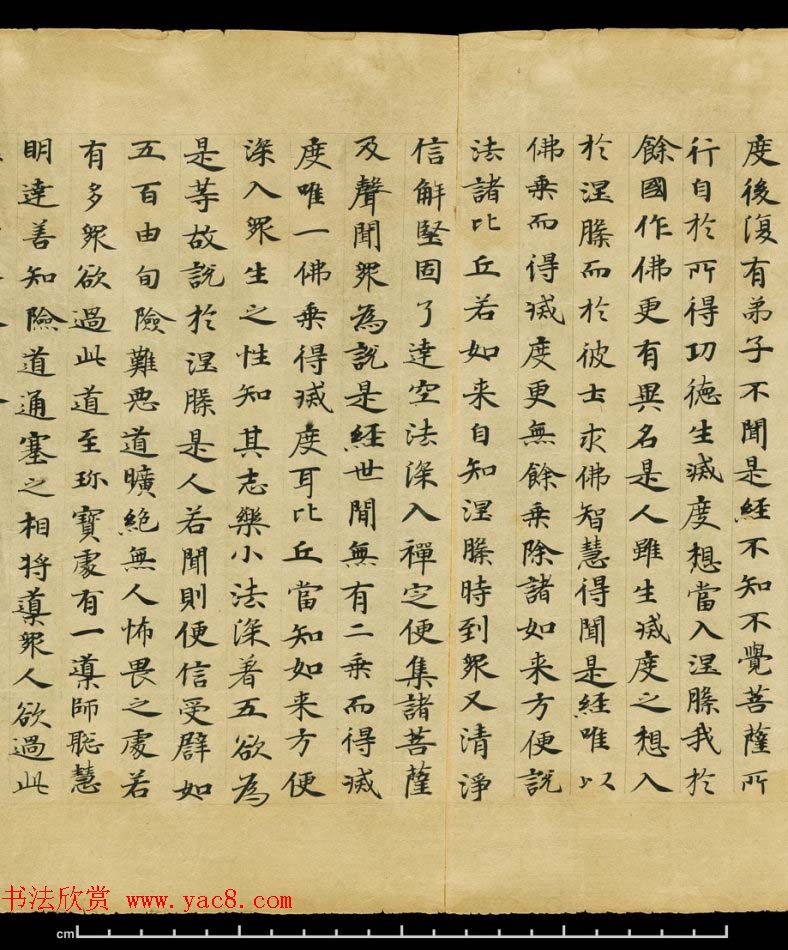 度後復有弟子不聞是經不知不覺菩薩所
行自於所得功德生滅度想當入涅槃我於
餘國作佛更有異名是人雖生滅度之想入
於涅槃而於彼土求佛智慧得聞是經唯以
佛乗而得滅度更無餘乗除諸如来方便說
法諸比丘若如来自知涅槃時到眾又清淨
信解堅固了達空法深入禪定便集諸菩薩
及聲聞眾為說是經世間無有二乗而得滅
度唯一佛乗得滅度耳比丘當知如来方便
深入眾生之性知其志樂小法深著五欲為
是等故說於涅槃是人若聞則便信受辟如
五百由旬險難惡道曠絕無人怖畏之處若
有多眾欲過此道至珎寶處有一導師聡慧
明達善知險道通塞之相將導眾人欲過此
书法欣赏 www.yac8.com
cm